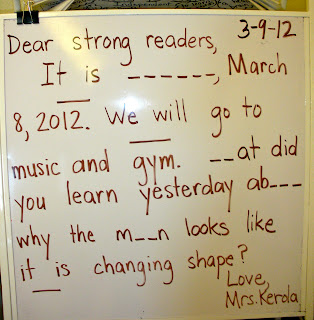 3-9-12
Dear strong readers,
It is ______, March
8, 2012. We will go to
music and gym. __at did
you learn yesterday ab___
why the m__n looks like
it is changing shape?
Love,
Mrs. Kerola